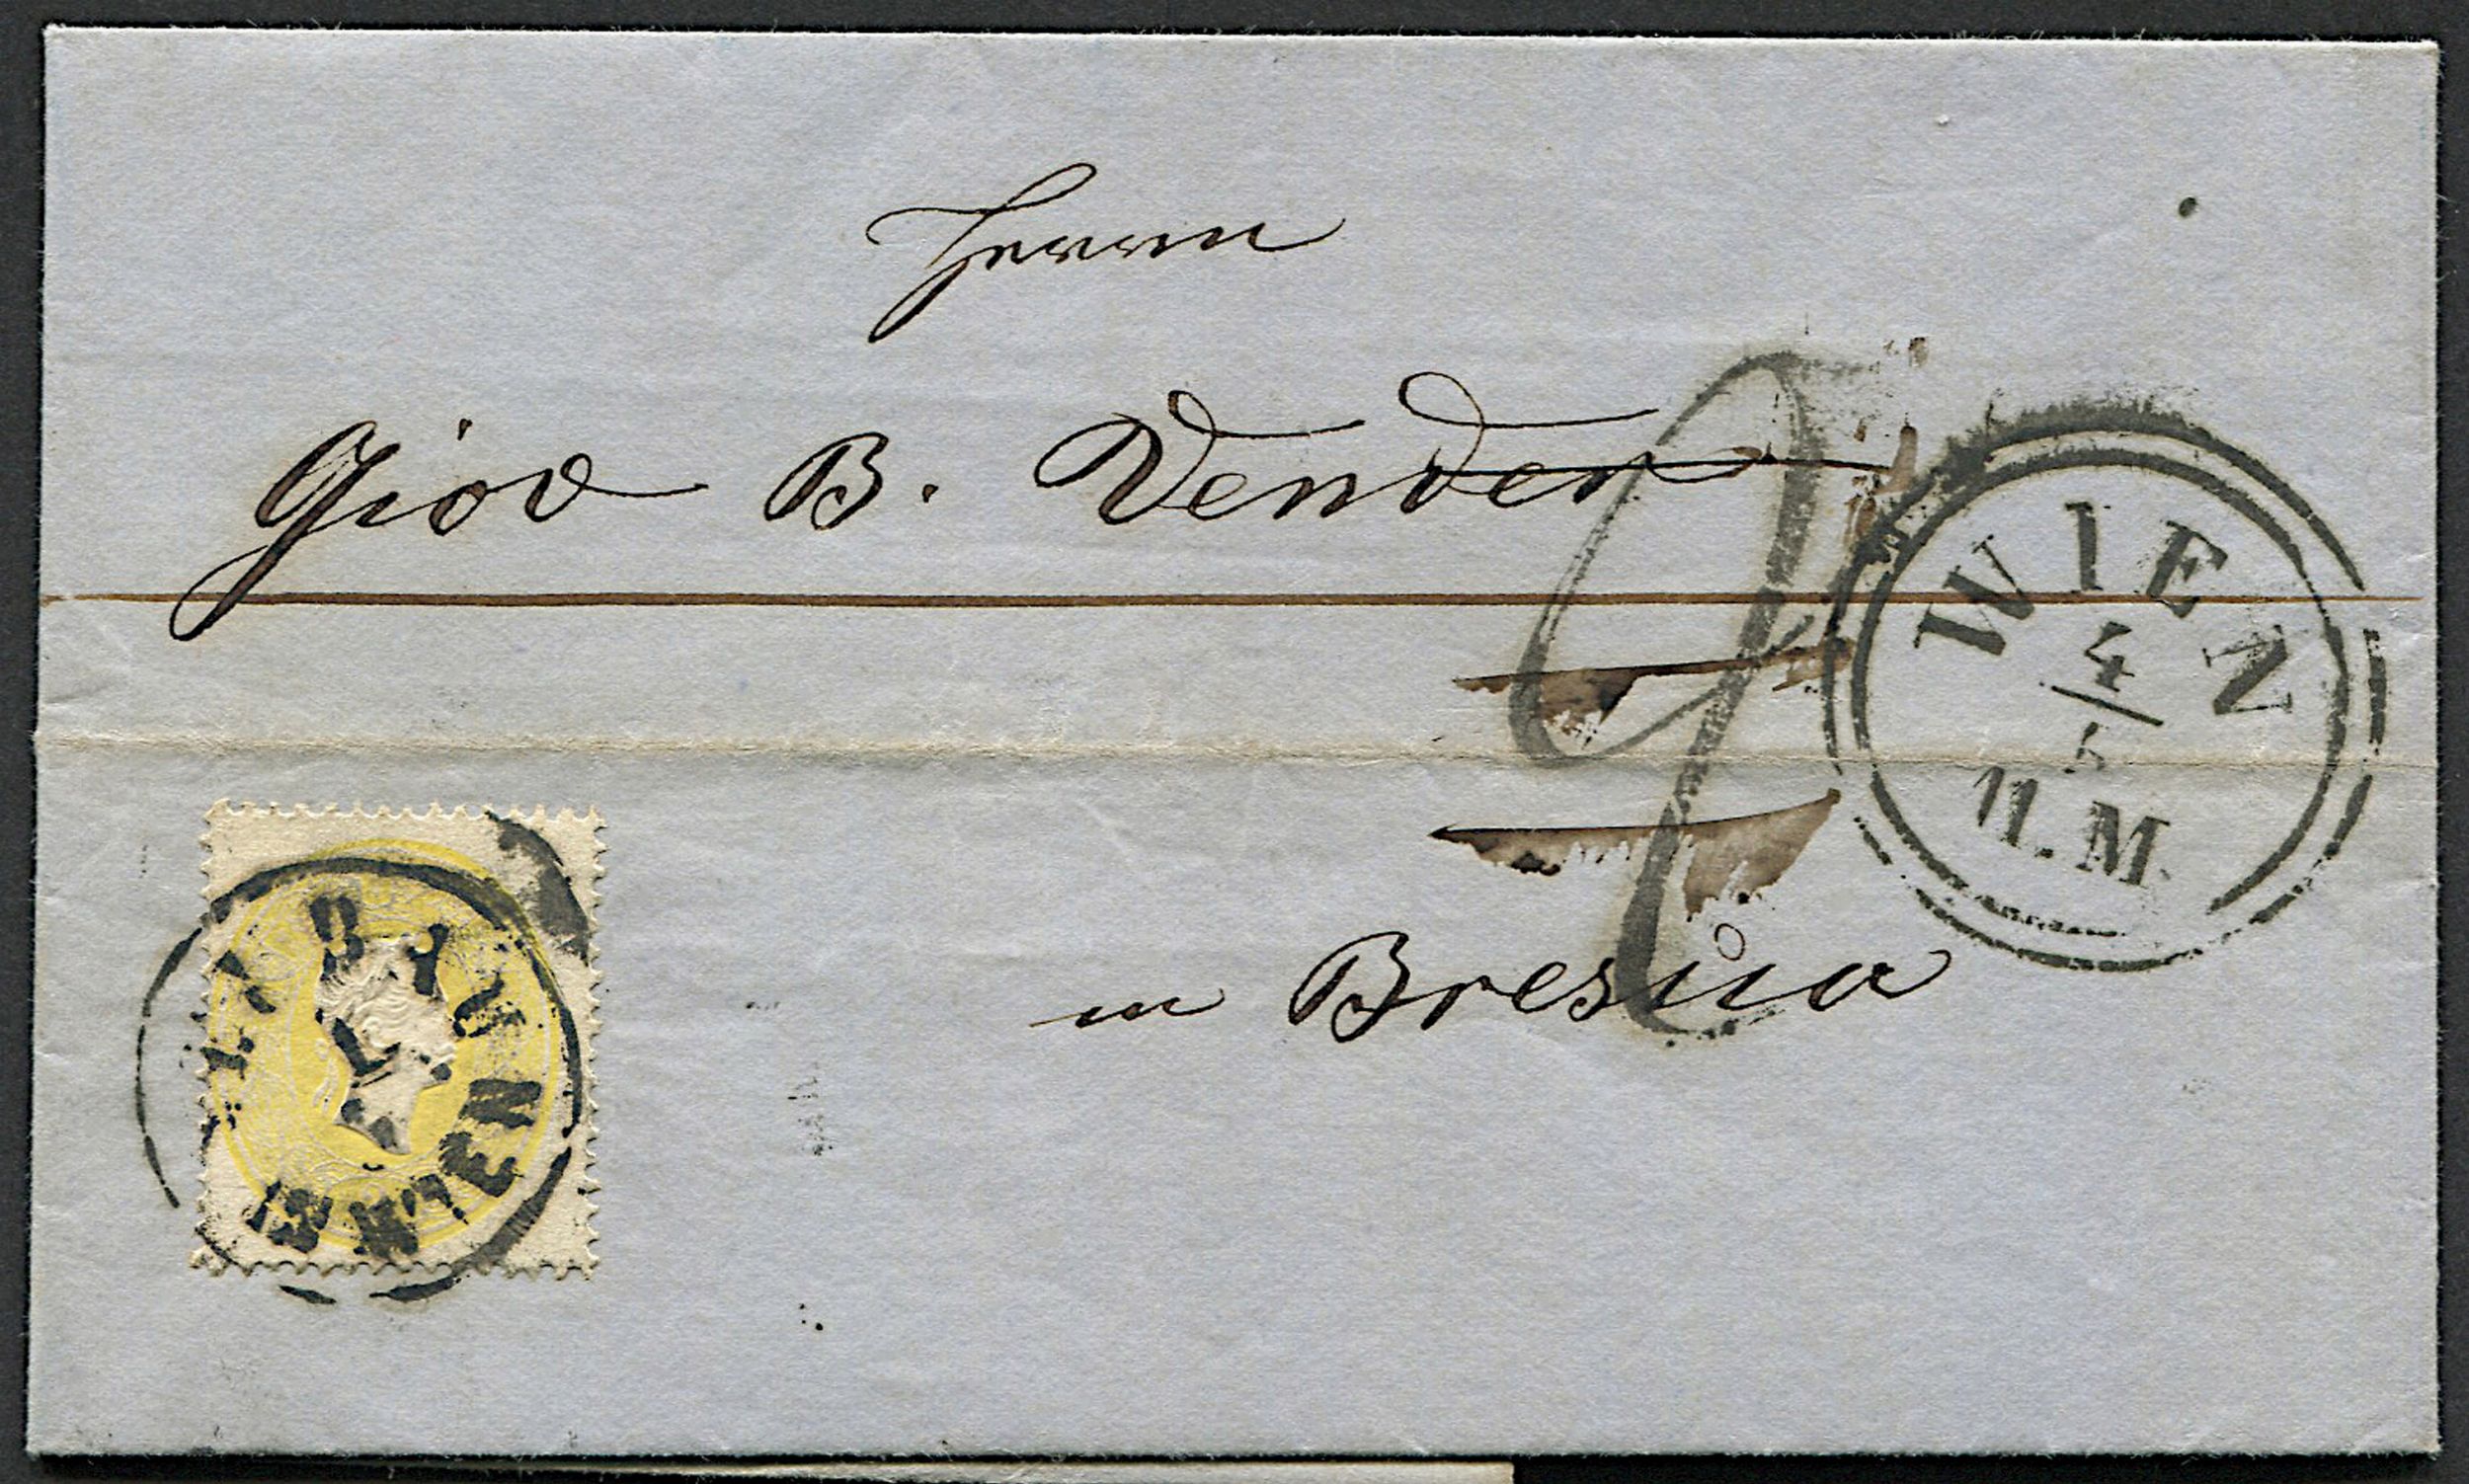 Herrn
Giov B. Vender
WIEN
4
5
11. M.
in Brescia
WIEN